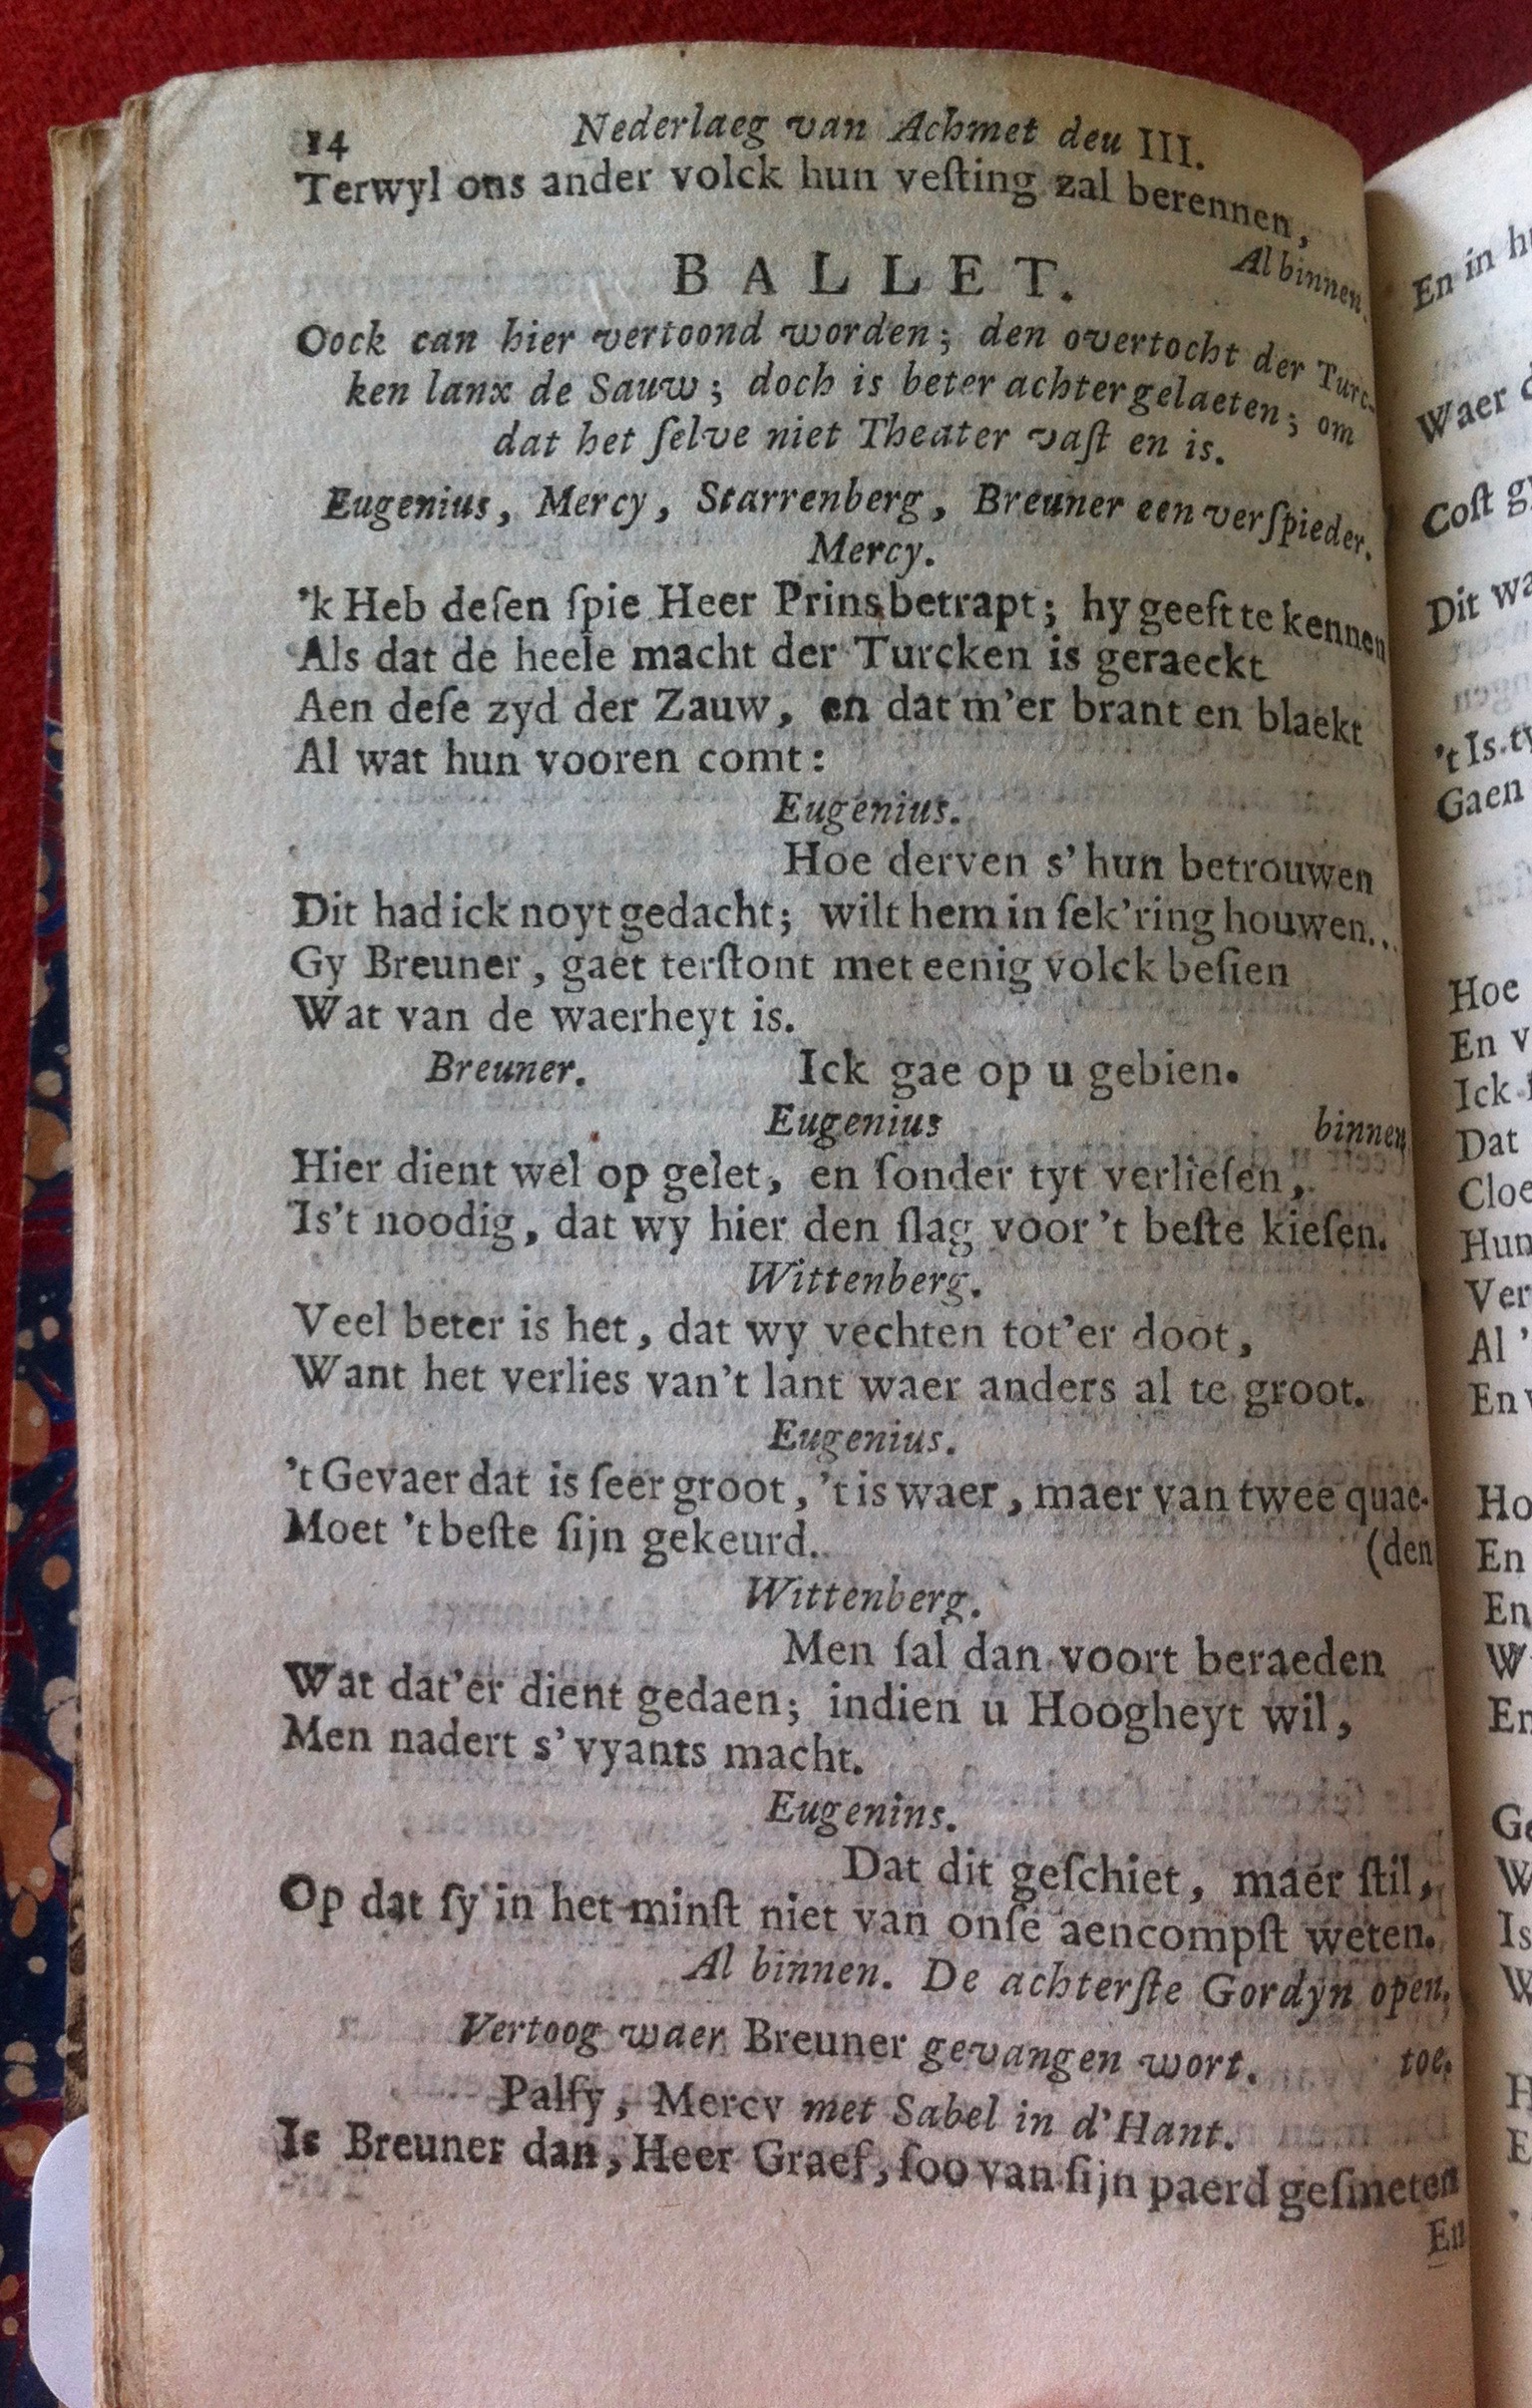 14 Nederlaeg van Achmet deu III.
Terwyl ons ander volck hun veſting zal berennen,
Al binnen.
BALLET.
Oock can hier vertoond worden; den overtocht der Turc-
ken lanx de Sauw; doch is beter achtergelaeten; om
dat het ſelve niet Theater vaſt en is.
Eugenius, Mercy, Starrenberg, Breuner een verſpieder.
Mercy.
'k Heb deſen ſpie Heer Prins betrapt; hy geeft te kennen
Als dat de heele macht der Turcken is geraeckt
Aen deſe zyd der Zauw, en dat m'er brant en blaekt
Al wat hun vooren comt:
Eugenius.
Hoe derven s'hun betrouwen
Dit had ick noyt gedacht; wilt hem in ſek'ring houwen...
Gy Breuner, gaet terſtont met eenig volck beſien
Wat van de waerheyt is.
Breuner. Ick gae op u gebien.
Eugenius binnen
Hier dient wel op gelet, en ſonder tyt verlieſen,
Is't noodig, dat wy hier den ſlag voor 't beſte kieſen.
Wittenberg.
Veel beter is het, dat wy vechten tot'er doot,
Want het verlies van't lant waer anders al te groot.
Eugenius.
't Gevaer dat is ſeer groot, 't is waer, maer van twee quae-
Moet 't beſte ſijn gekeurd. (den
Wittenberg.
Men ſal dan voort beraeden
Wat dat'er dient gedaen; indien u Hoogheyt wil,
Men nadert s'vyants macht.
Eugenins.
Dat dit geſchiet, maer ſtil,
Op dat ſy in het minſt niet van onſe aencompſt weten.
Al binnen. De achterſte Gordyn open.
Vertoog waer Breuner gevangen wort. toe.
Palfy, Mercy met Sabel in d'Hant.
Is Breuner dan, Heer Graef, ſoo van ſijn paerd geſmeten
En
En in
Waer
Coſt
Dit
't Is
Gaen
Hoe
En
Ick
Dat
Hun
Ver
Al '
En
En
En
Is